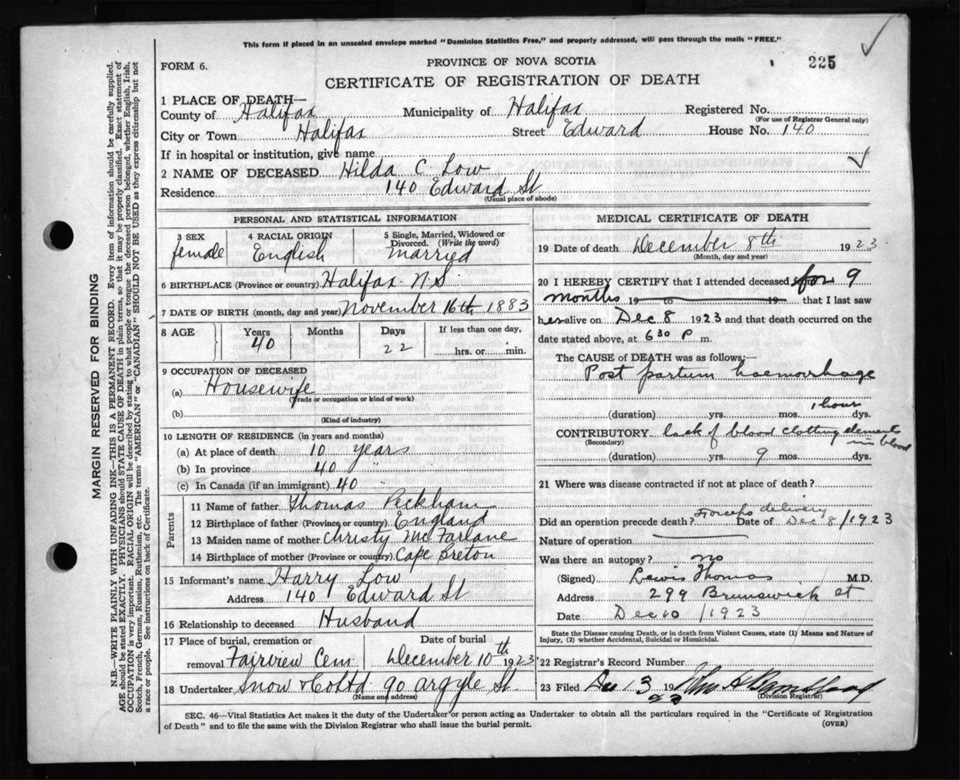 This form if placed in an unsealed envelope marked "Dominion Statistics Free," and properly addressed, will pass through the mails "FREE."
225
FORM 6.
PROVINCE OF NOVA SCOTIA
CERTIFICATE OF REGISTRATION OF DEATH
1 PLACE OF DEATH—
County of Halifax Municipality of Halifax Registered No.
(For use of Registrar General only)
City or Town Halifax Street Edward House No. 140
If in hospital or institution, give name
2 NAME OF DECEASED Hilda C Low
Residence 140 Edward St
(Usual place of abode)
PERSONAL AND STATISTICAL INFORMATION
3 SEX female
4 RACIAL ORIGIN English
5 Single, Married, Widowed or Divorced. (Write the word) Married
6 BIRTHPLACE (Province or country) Halifax N.S.
7 DATE OF BIRTH (month, day and year) November 16th 1883
8 AGE Years Months Days If less than one day,
40 22 hrs. or min.
9 OCCUPATION OF DECEASED
(a) Housewife
(Trade or occupation or kind of work)
(b)
(Kind of industry)
10 LENGTH OF RESIDENCE (in years and months)
(a) At place of death 10 years
(b) In province 40 "
(c) In Canada (if an immigrant) 40
Parents
11 Name of father Thomas Peckham
12 Birthplace of father (Province or country) England
13 Maiden name of mother Christy McFarlane
14 Birthplace of mother (Province or country) Cape Breton
15 Informant's name Harry Low
Address 140 Edward St
16 Relationship to deceased Husband
17 Place of burial, cremation or Date of burial
removal Fairview Cem December 10th 1923
18 Undertaker Snow & Co Ltd 90 Argyle St
(Name and address)
MEDICAL CERTIFICATE OF DEATH
19 Date of death December 8th 1923
(Month, day and year)
20 I HEREBY CERTIFY that I attended deceased for 9
months 19 to 19 that I last saw
her alive on Dec 8 1923 and that death occurred on the
date stated above, at 6 30 P m.
The CAUSE of DEATH was as follows:—
Post partum haemorrhage
1 hour
(duration) yrs. mos. dys.
CONTRIBUTORY lack of blood clotting elements
in blood
(Secondary)
(duration) yrs. 9 mos. dys.
21 Where was disease contracted if not at place of death?
Forceps delivery
Did an operation precede death? Date of Dec 8/1923
Nature of operation
Was there an autopsy? no
(Signed) Lewis Thomas M.D.
Address 299 Brunswick st
Date Dec 10 /1923
State the Disease causing Death, or in death from Violent Causes, state (1) Means and Nature of Injury, (2) whether Accidental, Suicidal or Homicidal.
22 Registrar's Record Number
23 Filed Dec 13 19 23
(Division Registrar)
SEC. 46—Vital Statistics Act makes it the duty of the Undertaker or person acting as Undertaker to obtain all the particulars required in the "Certificate of Registration
of Death" and to file the same with the Division Registrar who shall issue the burial permit.
(OVER)
MARGIN RESERVED FOR BINDING
N.B.—WRITE PLAINLY WITH UNFADING INK—THIS IS A PERMANENT RECORD. Every item of information should be carefully supplied.
AGE should be stated EXACTLY. PHYSICIANS should STATE CAUSE OF DEATH in plain terms, so that it may be properly classified. Exact statement of
OCCUPATION is very important. RACIAL ORIGIN will be described by stating to what people or tongue the deceased person belonged, whether English, Irish,
Scotch, French, German, Russian, Ruthenian, etc. The terms "AMERICAN" or "CANADIAN" SHOULD NOT BE USED as they express citizenship but not
a race or people. See instructions on back of Certificate.